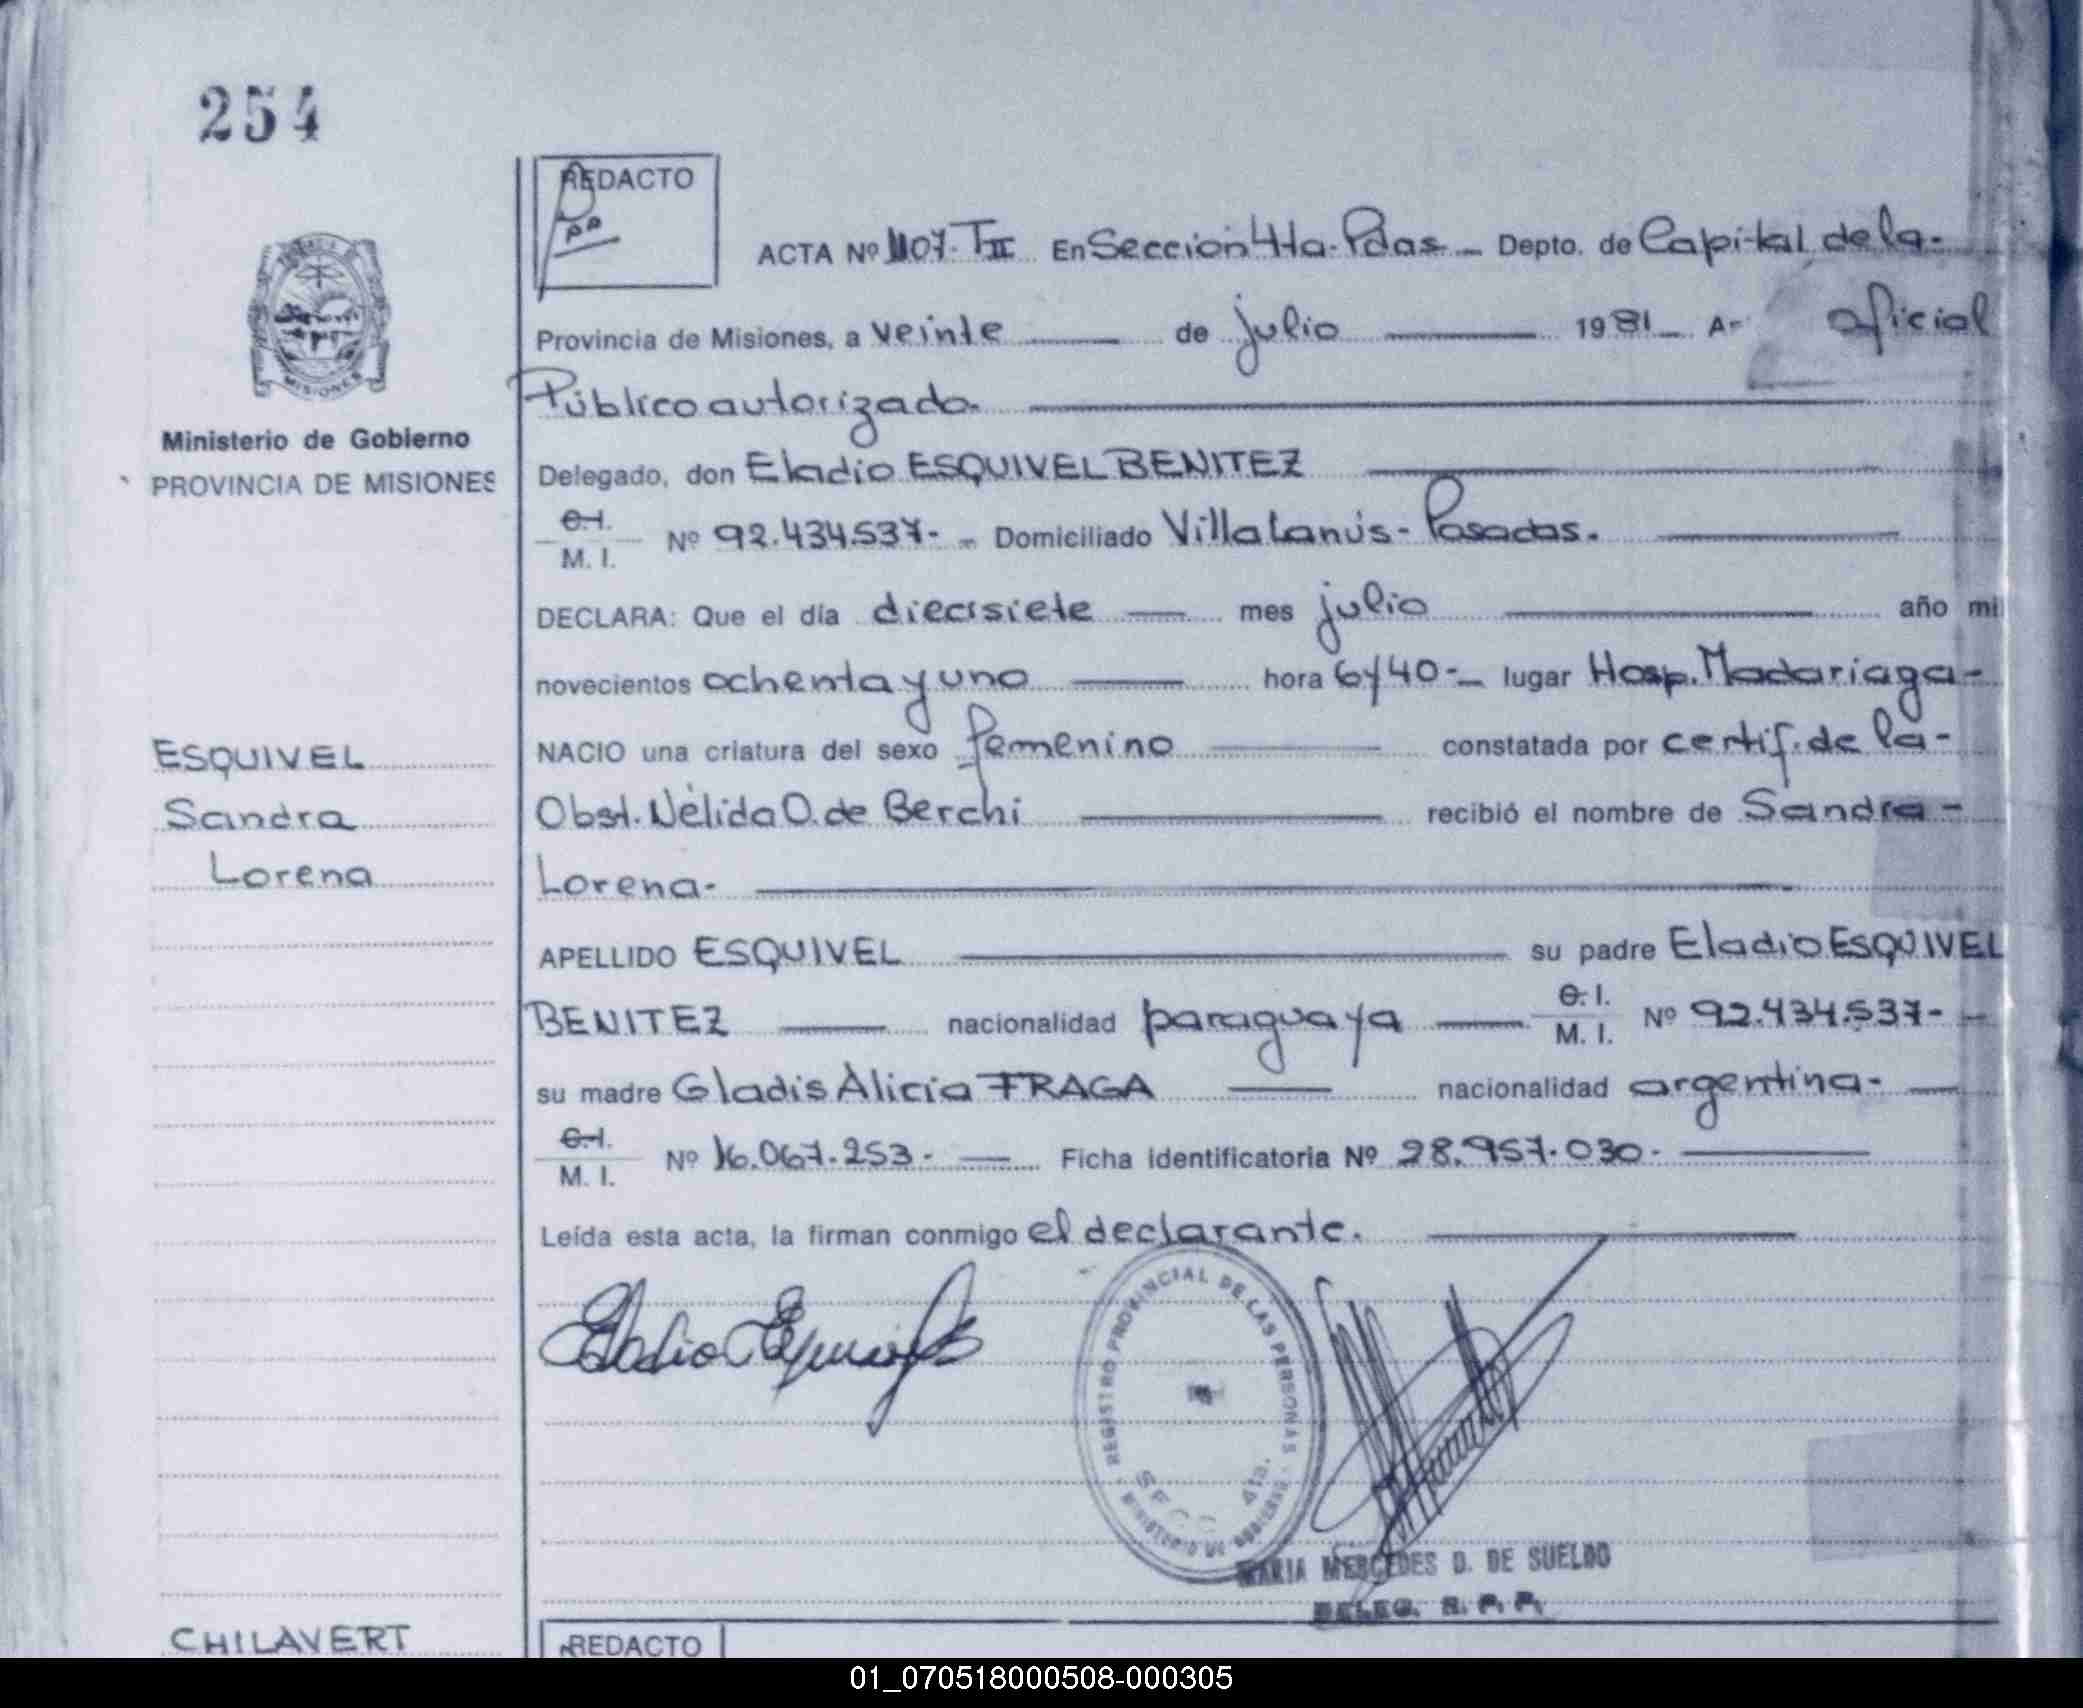 254
REDACTO
ACTA Nº 1107-TII En Sección 4ta. Pdas. Depto. de Capital de la-
Provincia de Misiones, a veinte de julio 1981 A- oficial
Público autorizado.
Ministerio de Gobierno
PROVINCIA DE MISIONES
Delegado, don Eladio ESQUIVEL BENITEZ
C.I.
M.I. Nº 92.434.537- Domiciliado Villa Lanús - Posadas.
DECLARA: Que el día diecisiete mes julio año mil
novecientos ochenta y uno hora 6y40- lugar Hosp. Madariaga-
ESQUIVEL
Sandra
Lorena
NACIO una criatura del sexo femenino constatada por certif. de la-
Obst. Nélida O. de Berchi recibió el nombre de Sandra-
Lorena-
APELLIDO ESQUIVEL su padre Eladio ESQUIVEL
BENITEZ nacionalidad paraguaya C.I.
M.I. Nº 92.434.537-
su madre Gladis Alicia FRAGA nacionalidad argentina-
C.I.
M.I. Nº 16.067.253- Ficha identificatoria Nº 28.957.030-
Leída esta acta, la firman conmigo el declarante.
Eladio Esquivel B
REGISTRO PROVINCIAL DE LAS PERSONAS
SECC 4ta.
MINISTERIO DE GOBIERNO
MARIA MERCEDES D. DE SUELDO
DELEG. R. P. P.
CHILAVERT
REDACTO
01_070518000508-000305